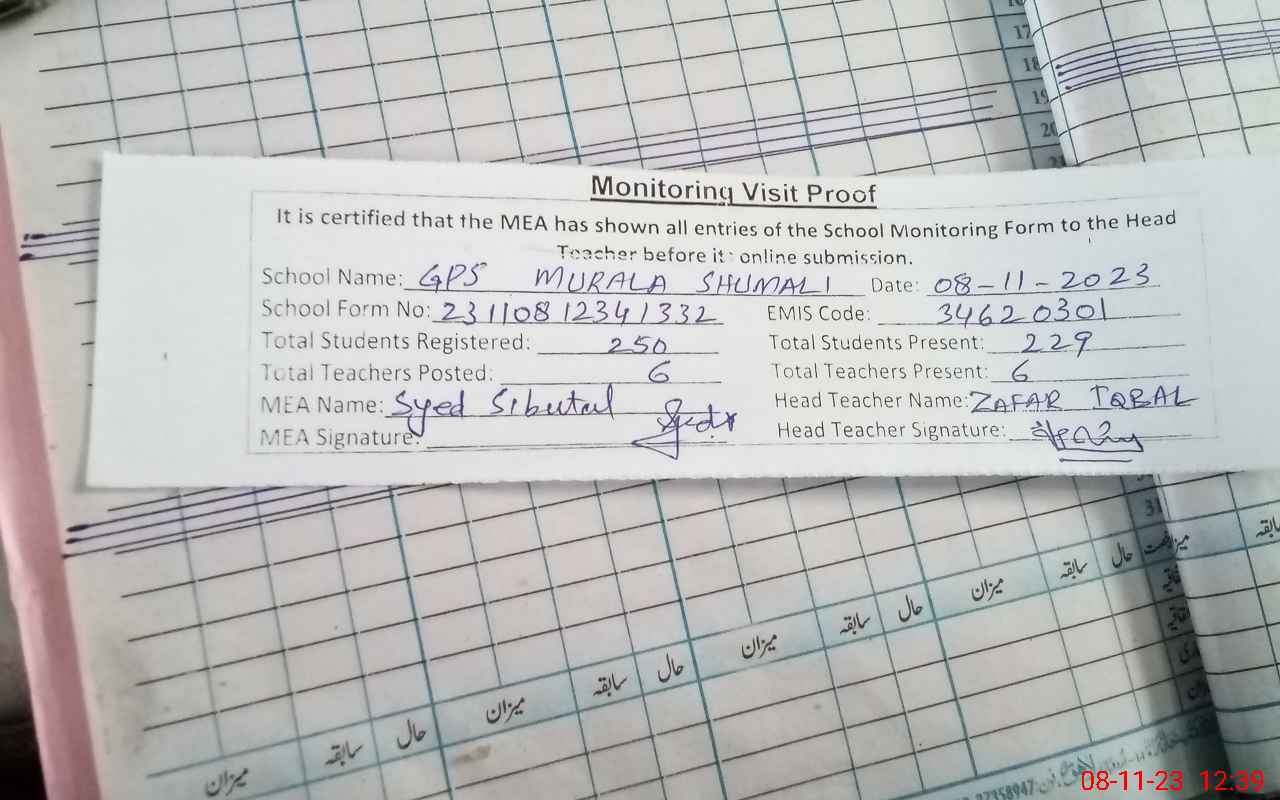 17
18
19
20
21
Monitoring Visit Proof
It is certified that the MEA has shown all entries of the School Monitoring Form to the Head
Teacher before it online submission.
School Name: GPS MURALA SHUMALI Date: 08-11-2023
School Form No: 231108 12341332 EMIS Code: 34620301
Total Students Registered: 250 Total Students Present: 229
Total Teachers Posted: 6 Total Teachers Present: 6
MEA Name: Syed Head Teacher Name: ZAFAR IQBAL
MEA Signature: Head Teacher Signature:
31
میزان سابقہ حال میزان سابقہ حال میزان سابقہ حال میزان سابقہ حال
سابقہ
37358947
08-11-23 12:39